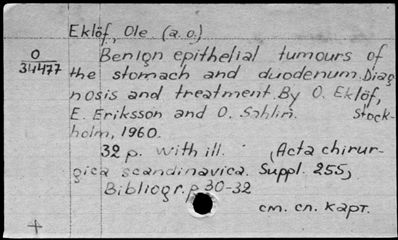 Eklöf, Ole (a.o.)
O
34477
Benign epithelial tumours of
the stomach and duodenum. Diag
nosis and treatment. By O. Eklöf,
E. Eriksson and O. Sahlin. Stock-
holm, 1960.
32 p. with ill. (Acta chirur-
gica scandinavica. Suppl. 255)
Bibliogr. p. 30-32
см. сл. карт.
+